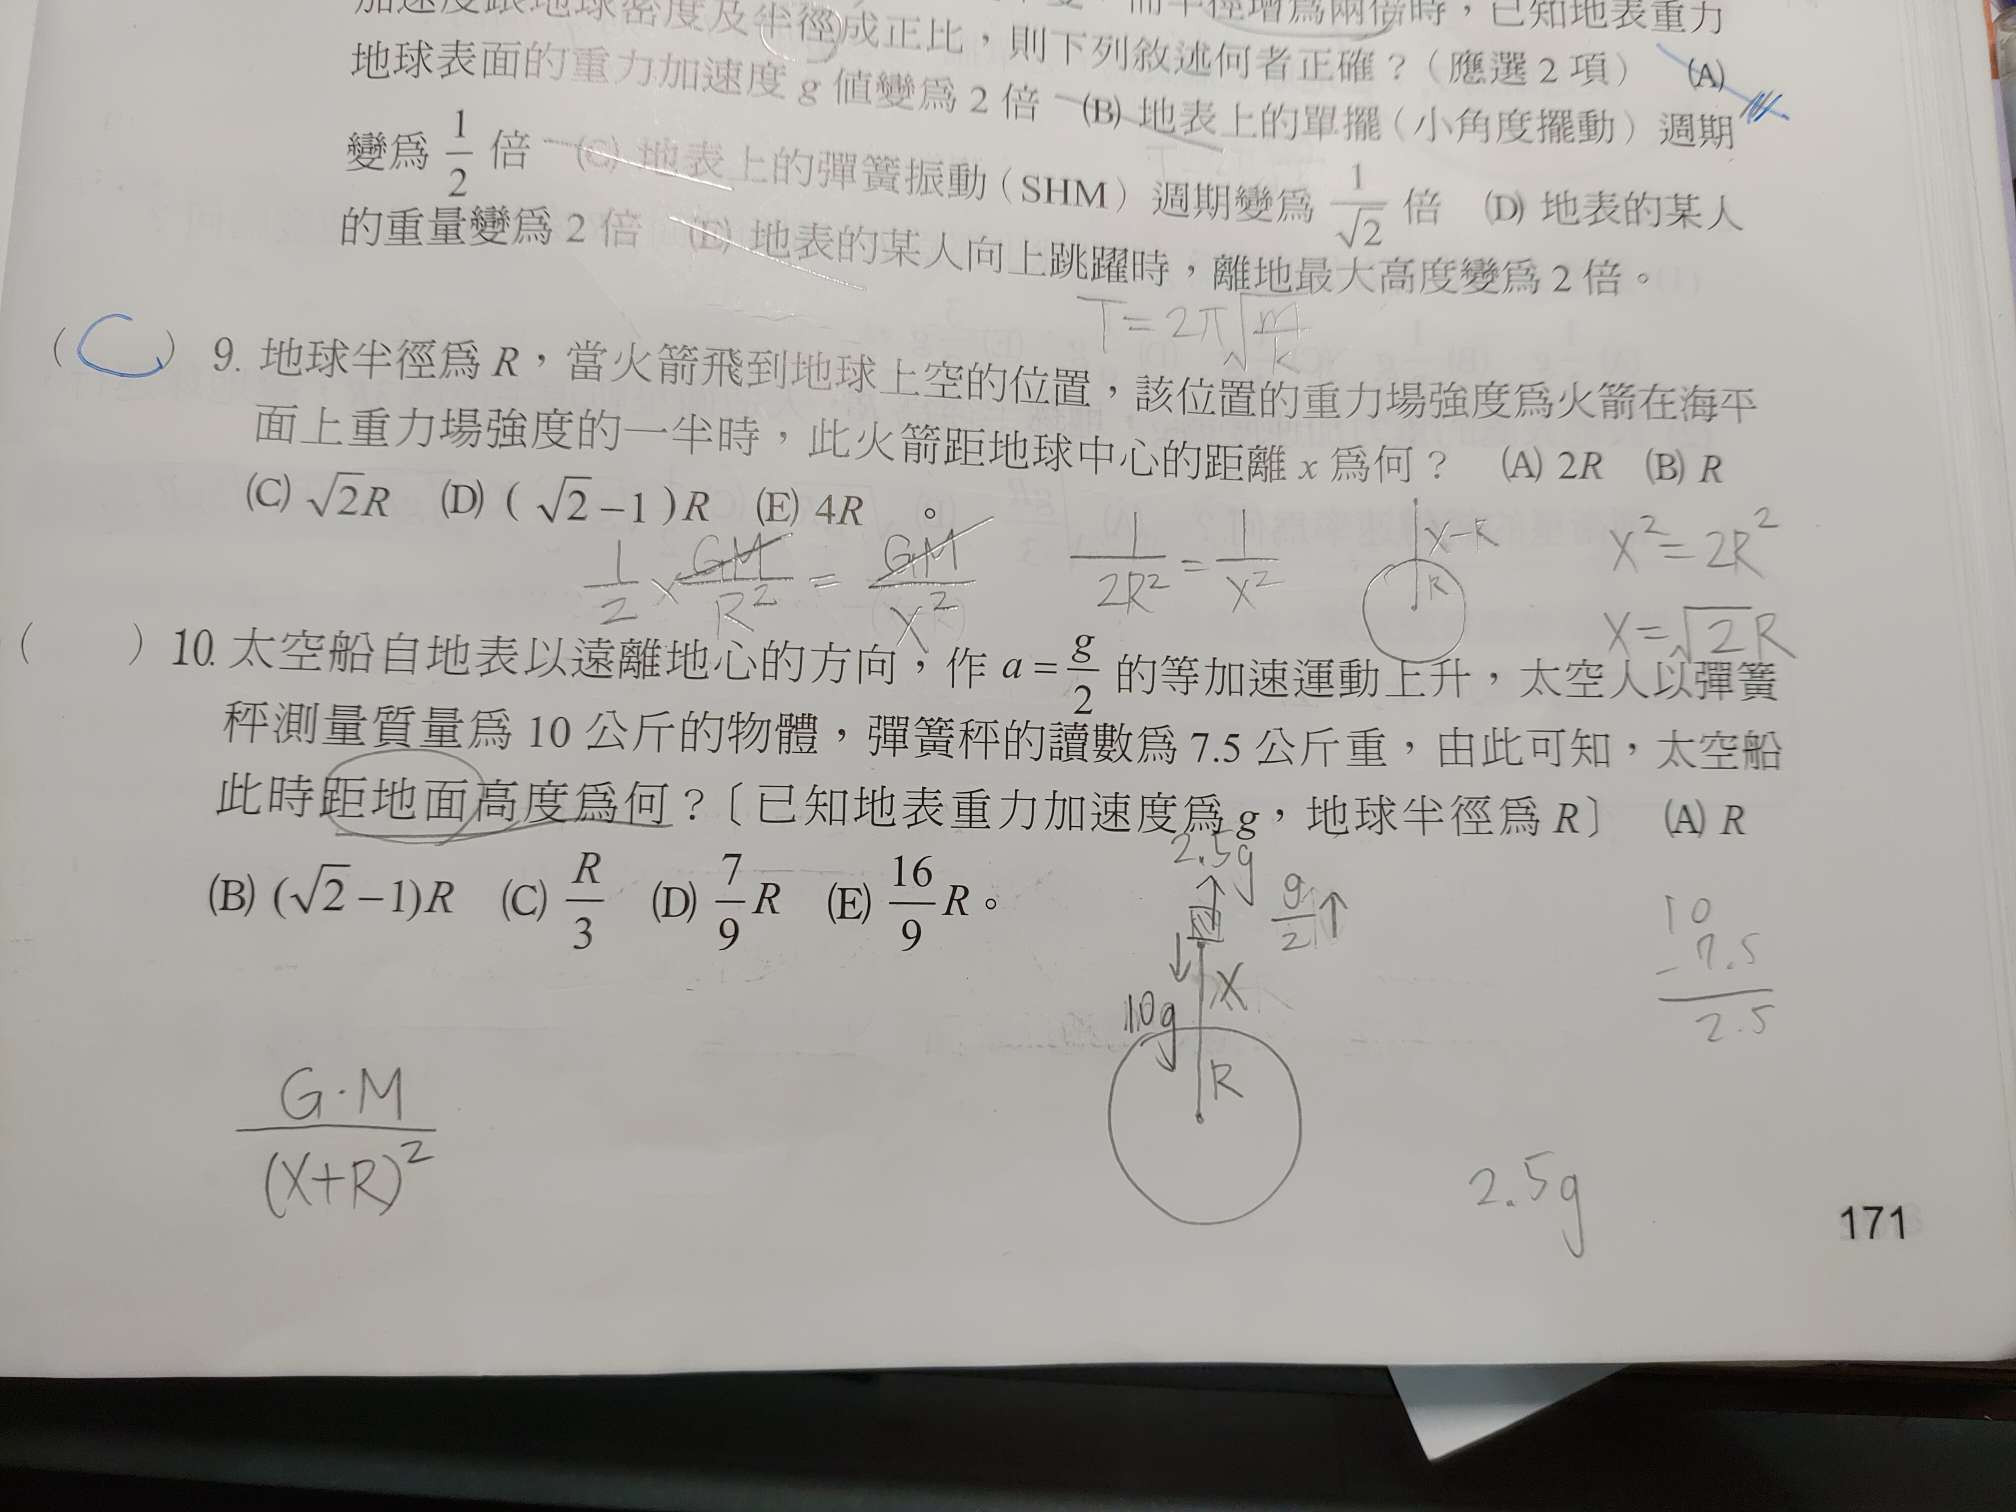 加速度跟地球密度及半徑成正比，則下列敘述何者正確？（應選 2 項） (A)
地球表面的重力加速度 g 値變爲 2 倍 (B) 地表上的單擺（小角度擺動）週期
變爲 1/2 倍 (C) 地表上的彈簧振動（SHM）週期變爲 1/√2 倍 (D) 地表的某人
的重量變爲 2 倍 (E) 地表的某人向上跳躍時，離地最大高度變爲 2 倍。
T=2π√(m/k)
(C) 9. 地球半徑爲 R，當火箭飛到地球上空的位置，該位置的重力場強度爲火箭在海平
面上重力場強度的一半時，此火箭距地球中心的距離 x 爲何？ (A) 2R (B) R
(C) √2R (D) (√2−1)R (E) 4R 。
1/2 × GM/R² = GM/X²
1/2R² = 1/X²
X−R
R
X²=2R²
X=√2R
( ) 10. 太空船自地表以遠離地心的方向，作 a=g/2 的等加速運動上升，太空人以彈簧
秤測量質量爲 10 公斤的物體，彈簧秤的讀數爲 7.5 公斤重，由此可知，太空船
此時距地面高度爲何？〔已知地表重力加速度爲 g，地球半徑爲 R〕 (A) R
(B) (√2−1)R (C) R/3 (D) 7/9 R (E) 16/9 R。
2.5g
g/2↑
X
10g
R
10
−7.5
2.5
G·M/(X+R)²
2.5g
171